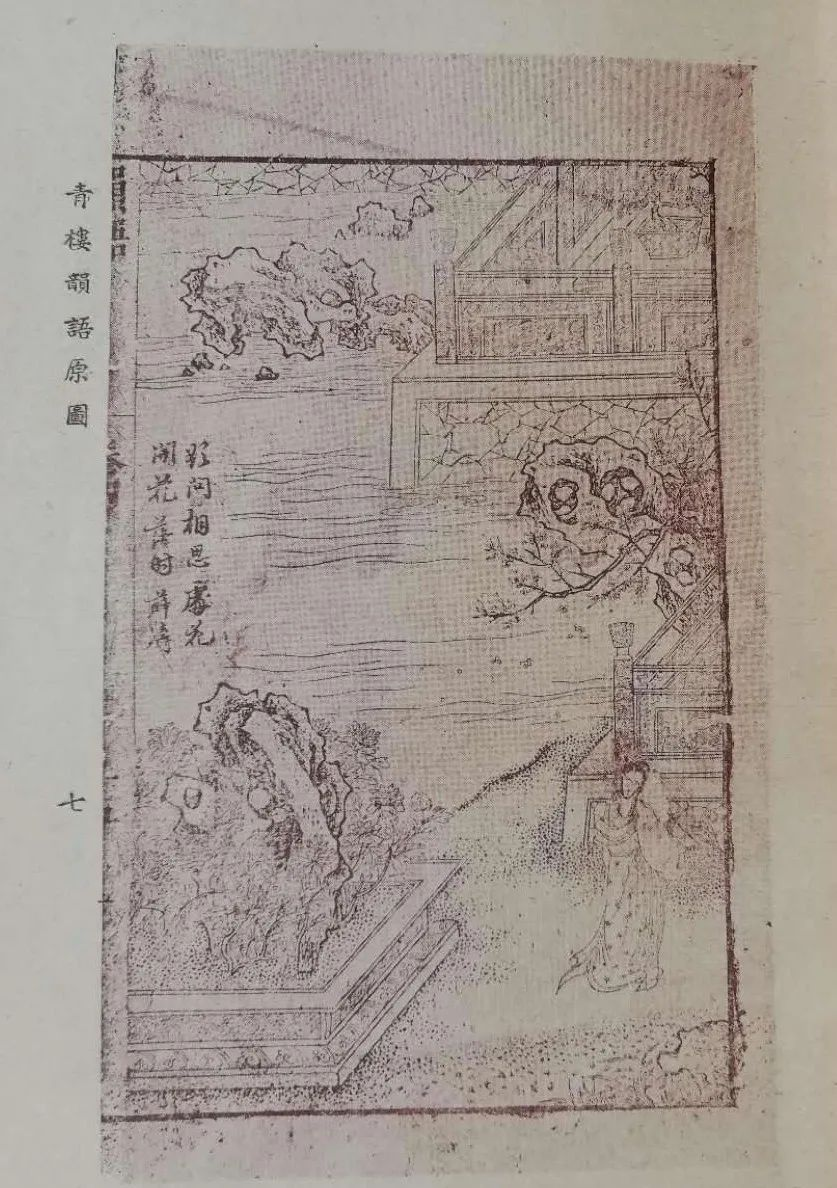 青樓韻語原圖
欲问相思處花
開花落时薛濤
七